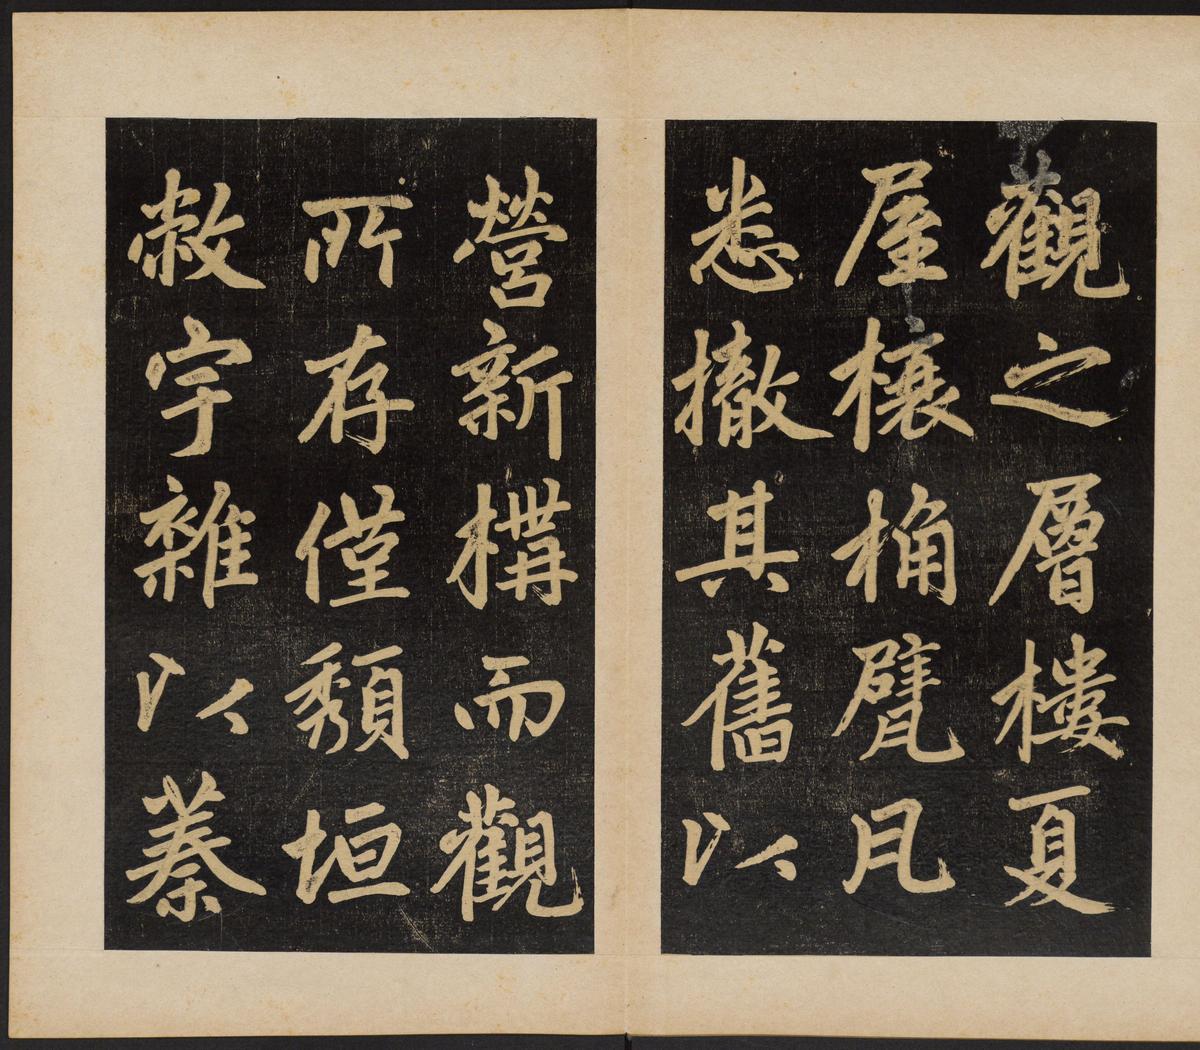 觀之層樓夏
屋榱桷甓凡
悉撤其舊以
營新構而觀
所存僅頹垣
敝宇雜以蓁